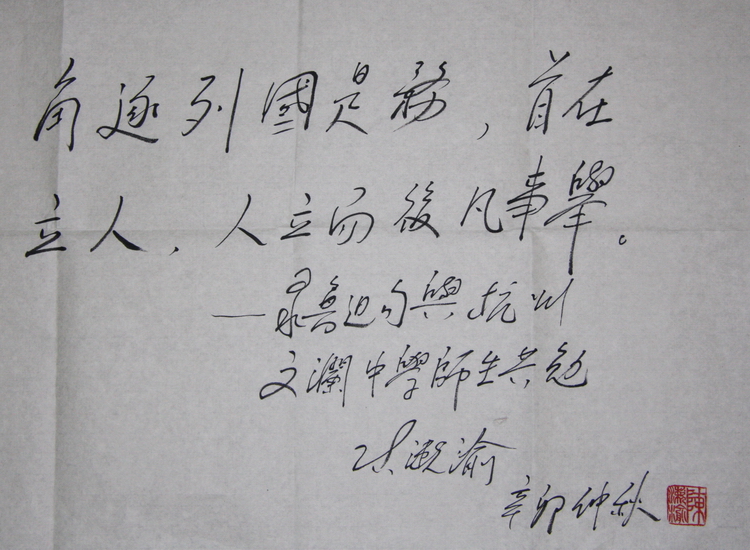 角逐列國是務，首在
立人，人立而後凡事舉。
——录魯迅句與杭州
文瀾中學師生共勉
陈漱渝
辛卯仲秋
陳漱渝